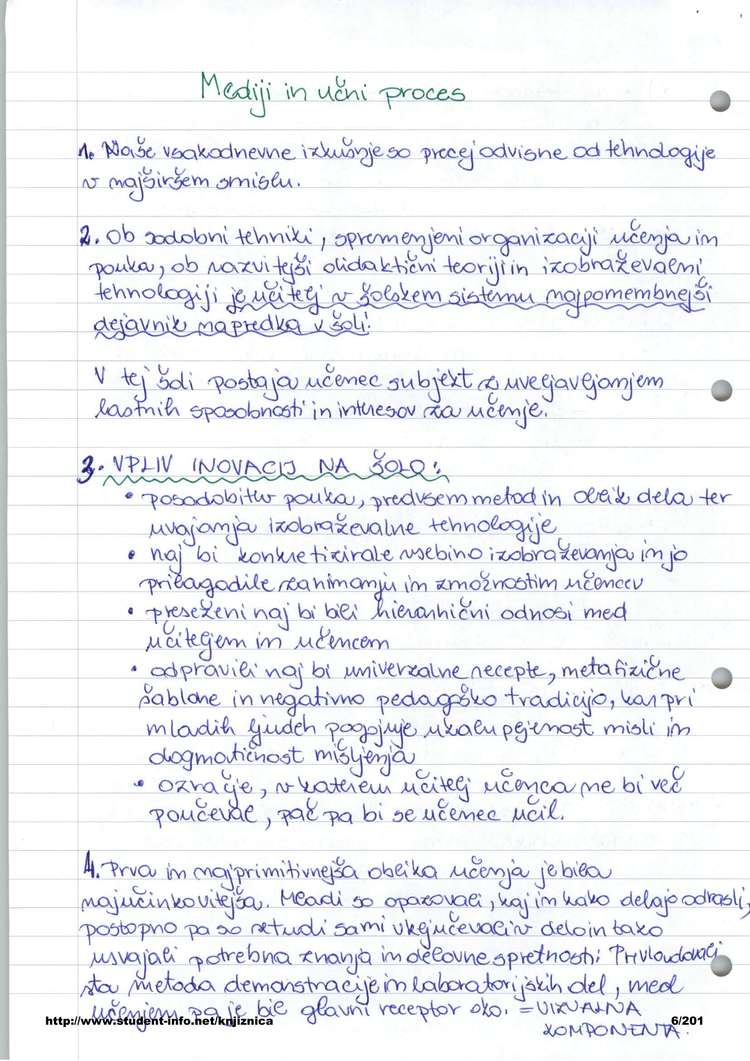 Mediji in učni proces
1. Naše vsakodnevne izkušnje so precej odvisne od tehnologije
v najširšem smislu.
2. Ob sodobni tehniki, spremenjeni organizaciji učenja in
pouka, ob razvitejši didaktični teoriji in izobraževalni
tehnologiji je učitelj v šolskem sistemu najpomembnejši
dejavnik napredka v šoli!
V tej šoli postaja učenec subjekt z uveljavljanjem
lastnih sposobnosti in interesov za učenje.
3. VPLIV INOVACIJ NA ŠOLO:
• posodobitev pouka, predvsem metod in oblik dela ter
uvajanja izobraževalne tehnologije
• naj bi konkretizirale vsebino izobraževanja in jo
prilagodile zanimanju in zmožnostim učencev
• preseženi naj bi bili hierarhični odnosi med
učiteljem in učencem
• odpravili naj bi univerzalne recepte, metafizične
šablone in negativno pedagoško tradicijo, kar pri
mladih ljudeh pogojuje ukalupljenost misli in
dogmatičnost mišljenja
• ozračje, v katerem učitelj učenca ne bi več
poučeval, pač pa bi se učenec učil.
4. Prva in najprimitivnejša oblika učenja je bila
najučinkovitejša. Mladi so opazovali, kaj in kako delajo odrasli,
postopno pa so se tudi sami vključevali v delo in tako
usvajali potrebna znanja in delovne spretnosti. Prevladovali
sta metoda demonstracije in laboratorijskih del, med
učenjem pa je bil glavni receptor oko. = VIZUALNA
KOMPONENTA.
http://www.student-info.net/knjiznica 6/201